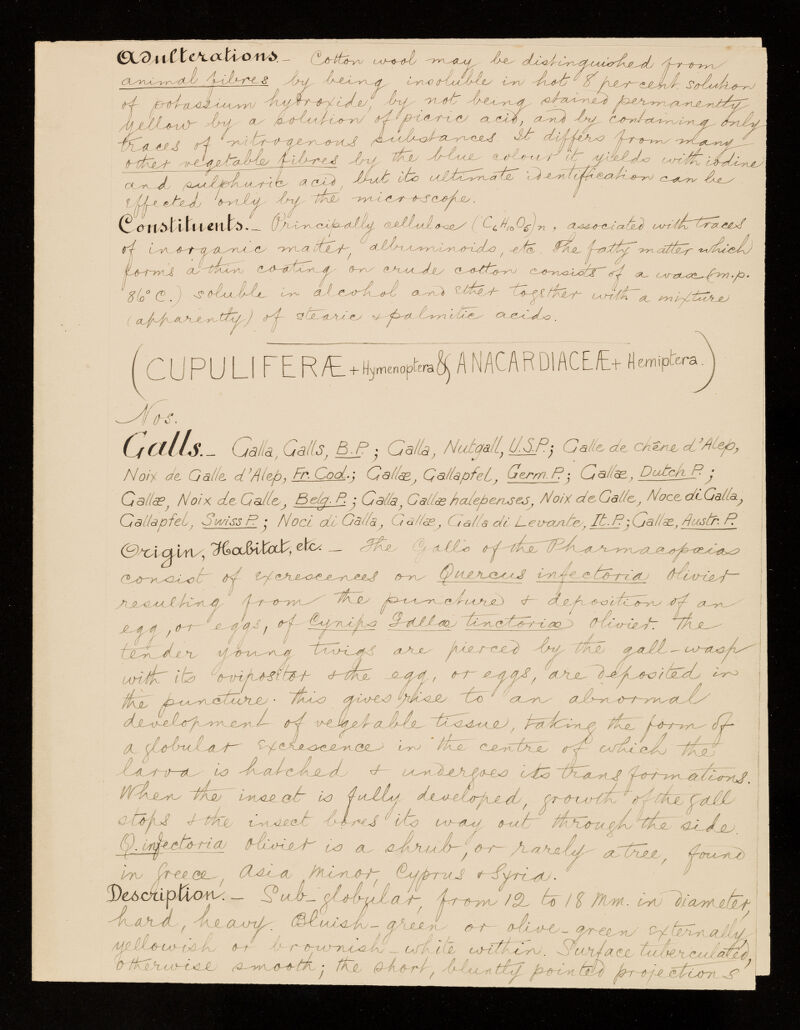 Adulterations.- Cotton wool may be distinguished from
animal fibres by being insoluble in hot 8 per cent. solution
of potassium hydroxide, by not being stained permanently
yellow by a solution of picric acid, and by containing only
traces of nitrogenous substances. It differs from many
other vegetable fibres by the blue colour it yields with iodine
and sulphuric acid, but its ultimate identification can be
effected only by the microscope.
Constituents.- Principally cellulose (C6H10O5)n, associated with traces
of inorganic matter, albuminoids, etc. The fatty matter which
forms a thin coating on crude cotton consists of a wax (m.p.
86° C.) soluble in alcohol and ether together with a mixture
(apparently) of stearic & palmitic acids.
(CUPULIFERÆ + Hymenoptera & ANACARDIACEÆ + Hemiptera.)
Nos.
Galls.- Galla, Galls, B.P.; Galla, Nutgall, U.S.P.; Galle de chêne d'Alep,
Noix de Galle d'Alep, Fr. Cod.; Gallæ, Gallapfel, Germ. P.; Gallæ, Dutch P.;
Gallæ, Noix de Galle, Belg. P.; Galla, Gallæ halepenses, Noix de Galle, Noce di Galla,
Gallapfel, Swiss P.; Noci di Galla, Gallæ, Galla di Levante, It. P.; Gallæ, Austr. P.
Origin, Habitat, etc. - The Galls of the Pharmacopœias
consist of excrescences on Quercus infectoria Olivier
resulting from the puncture & deposition of an
egg, or eggs, of Cynips Gallæ tinctoriæ Olivier. The
tender young twigs are pierced by the gall-wasp
with its ovipositor & the egg, or eggs, are deposited in
the puncture. This gives rise to an abnormal
development of vegetable tissue, taking the form of
a globular excrescence in the centre of which the
larva is hatched & undergoes its transformations.
When the insect is fully developed, growth of the gall
stops & the insect bores its way out through the side.
Q. infectoria Olivier is a shrub, or rarely a tree, found
in Greece, Asia Minor, Cyprus & Syria.
Description.- Sub-globular, from 12 to 18 mm. in diameter,
hard, heavy. Bluish-green or olive-green externally,
yellowish or brownish-white within. Surface tuberculated,
otherwise smooth; the short, bluntly pointed projections